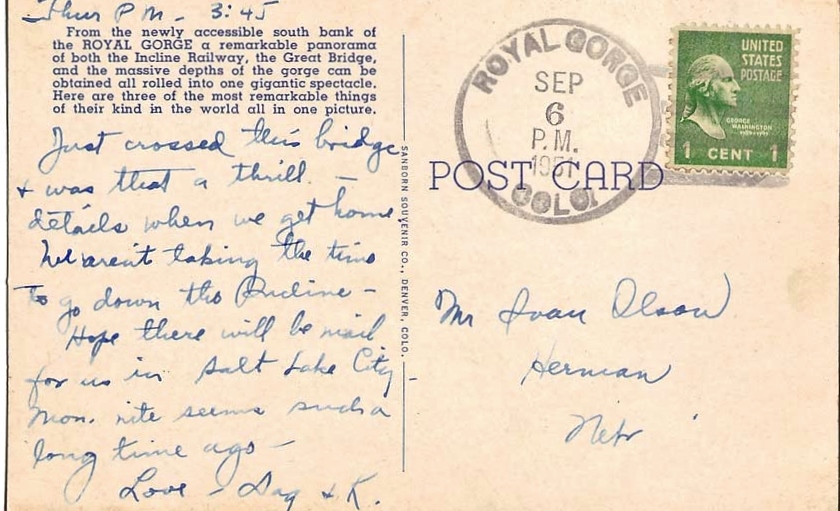 Thur P.M. - 3:45
From the newly accessible south bank of
the ROYAL GORGE a remarkable panorama
of both the Incline Railway, the Great Bridge,
and the massive depths of the gorge can be
obtained all rolled into one gigantic spectacle.
Here are three of the most remarkable things
of their kind in the world all in one picture.
Just crossed this bridge
+ was that a thrill. -
details when we get home
We aren't taking the time
to go down the Incline -
Hope there will be mail
for us in Salt Lake City -
Mon. nite seems such a
long time ago -
Love - Dag & K.
SANBORN SOUVENIR CO., DENVER, COLO.
ROYAL GORGE
SEP
6
P.M.
1951
COLO.
UNITED
STATES
POSTAGE
GEORGE
WASHINGTON
1 CENT 1
POST CARD
Mr Ivan Olson
Herman
Nebr